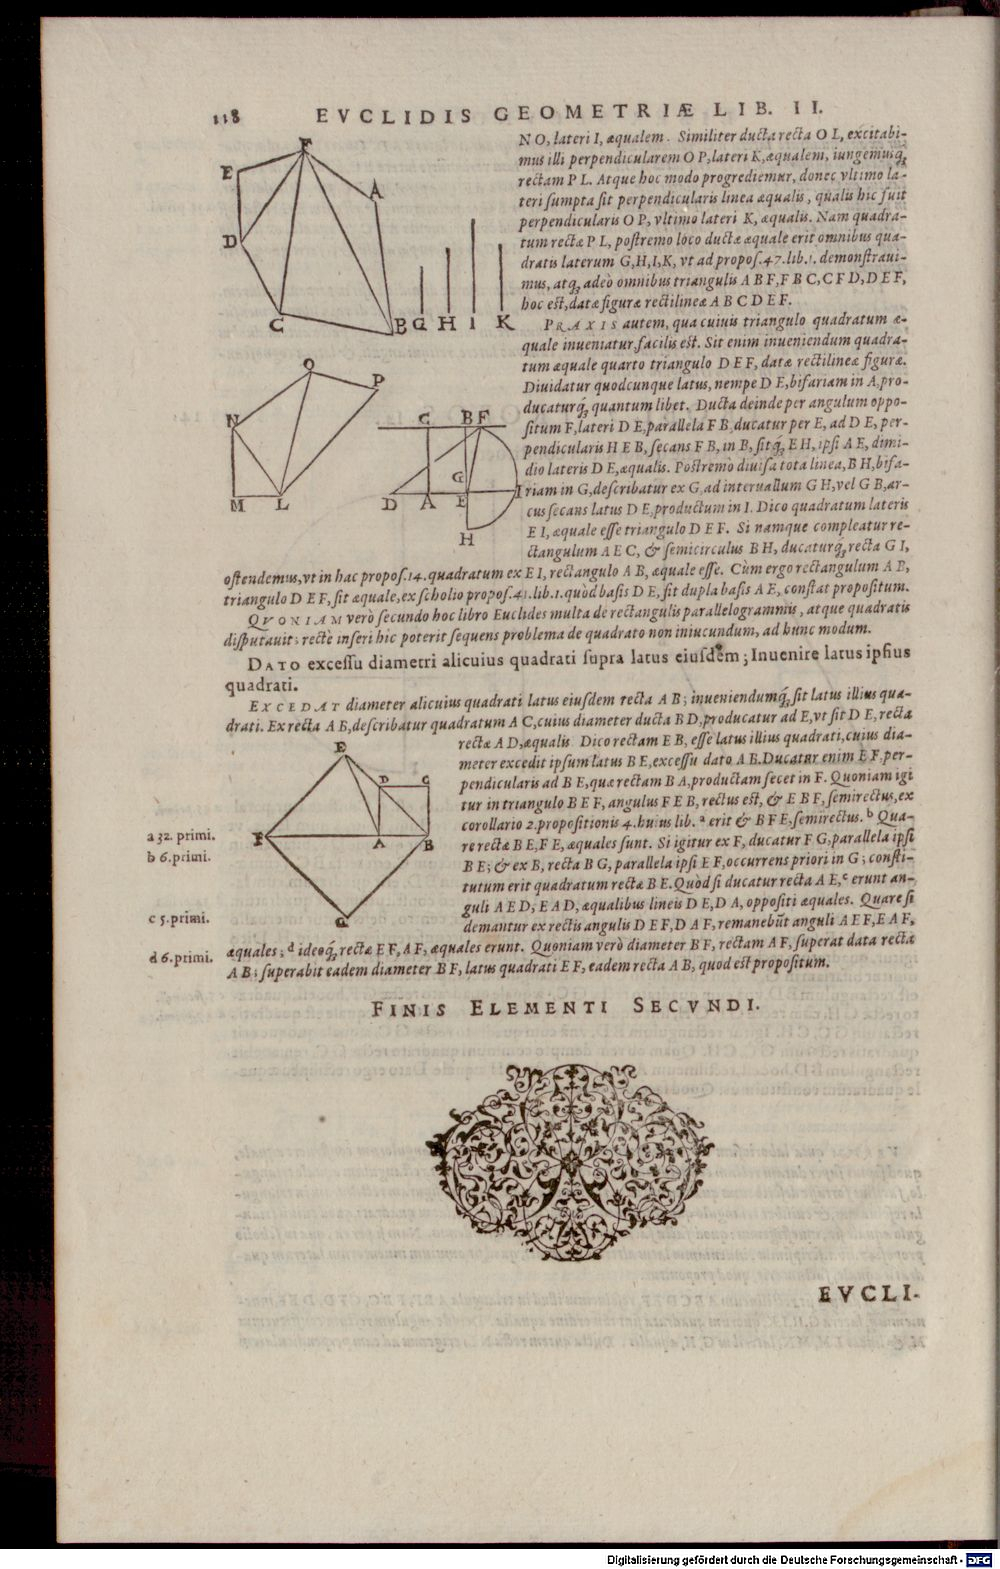 118 EVCLIDIS GEOMETRIÆ LIB. II.
NO, lateri I, æqualem. Similiter ducta recta O L, excitabi-
mus illi perpendicularem O P, lateri K, æqualem, iungemusq́;
rectam P L. Atque hoc modo progrediemur, donec vltimo la-
teri sumpta sit perpendicularis linea æqualis, qualis hic fuit
perpendicularis O P, vltimo lateri K, æqualis. Nam quadra-
tum rectæ P L, postremo loco ductæ æquale erit omnibus qua-
dratis laterum G, H, I, K, vt ad propos. 47. lib. 1. demonstraui-
mus, atq; adeò omnibus triangulis A B F, F B C, C F D, D E F,
hoc est, datæ figuræ rectilineæ A B C D E F.
PRAXIS autem, qua cuiuis triangulo quadratum æ-
quale inueniatur, facilis est. Sit enim inueniendum quadra-
tum æquale quarto triangulo D E F, datæ rectilineæ figuræ.
Diuidatur quodcunque latus, nempe D E, bifariam in A, pro-
ducaturq́; quantum libet. Ducta deinde per angulum oppo-
situm F, lateri D E, parallela F B, ducatur per E, ad D E, per-
pendicularis H E B, secans F B, in B, sitq́; E H, ipsi A E, dimi-
dio lateris D E, æqualis. Postremo diuisa tota linea, B H, bifa-
riam in G, describatur ex G, ad interuallum G H, vel G B, ar-
cus secans latus D E, productum in I. Dico quadratum lateris
E I, æquale esse triangulo D E F. Si namque compleatur re-
ctangulum A E C, & semicirculus B H, ducaturq́; recta G I,
ostendemus, vt in hac propos. 14. quadratum ex E I, rectangulo A B, æquale esse. Cùm ergo rectangulum A B,
triangulo D E F, sit æquale, ex scholio propos. 41. lib. 1. quòd basis D E, sit dupla basis A E, constat propositum.
QVONIAM verò secundo hoc libro Euclides multa de rectangulis parallelogrammis, atque quadratis
disputauit; rectè inseri hic poterit sequens problema de quadrato non iniucundum, ad hunc modum.
DATO excessu diametri alicuius quadrati supra latus eiusdem; Inuenire latus ipsius
quadrati.
EXCEDAT diameter alicuius quadrati latus eiusdem recta A B; inueniendumq́; sit latus illius qua-
drati. Ex recta A B, describatur quadratum A C, cuius diameter ducta B D, producatur ad E, vt sit D E, recta
rectæ A D, æqualis. Dico rectam E B, esse latus illius quadrati, cuius dia-
meter excedit ipsum latus B E, excessu dato A B. Ducatur enim E F, per-
pendicularis ad B E, quæ rectam B A, productam secet in F. Quoniam igi
tur in triangulo B E F, angulus F E B, rectus est, & E B F, semirectus, ex
corollario 2. propositionis 4. huius lib. a erit & B F E, semirectus. b Qua-
re rectæ B E, F E, æquales sunt. Si igitur ex F, ducatur F G, parallela ipsi
B E; & ex B, recta B G, parallela ipsi E F, occurrens priori in G; consti-
tutum erit quadratum rectæ B E. Quòd si ducatur recta A E, c erunt an-
guli A E D, E A D, æqualibus lineis D E, D A, oppositi æquales. Quare si
demantur ex rectis angulis D E F, D A F, remanebũt anguli A E F, E A F,
æquales; d ideoq́; rectæ E F, A F, æquales erunt. Quoniam verò diameter B F, rectam A F, superat data recta
A B; superabit eadem diameter B F, latus quadrati E F, eadem recta A B, quod est propositum.
a 32. primi.
b 6. primi.
c 5. primi.
d 6. primi.
F
E
A
D
C
B G H I K
O
P
N
M L
C B F
G
D A E I
H
E
D C
F A B
G
FINIS ELEMENTI SECVNDI.
EVCLI-
Digitalisierung gefördert durch die Deutsche Forschungsgemeinschaft - DFG